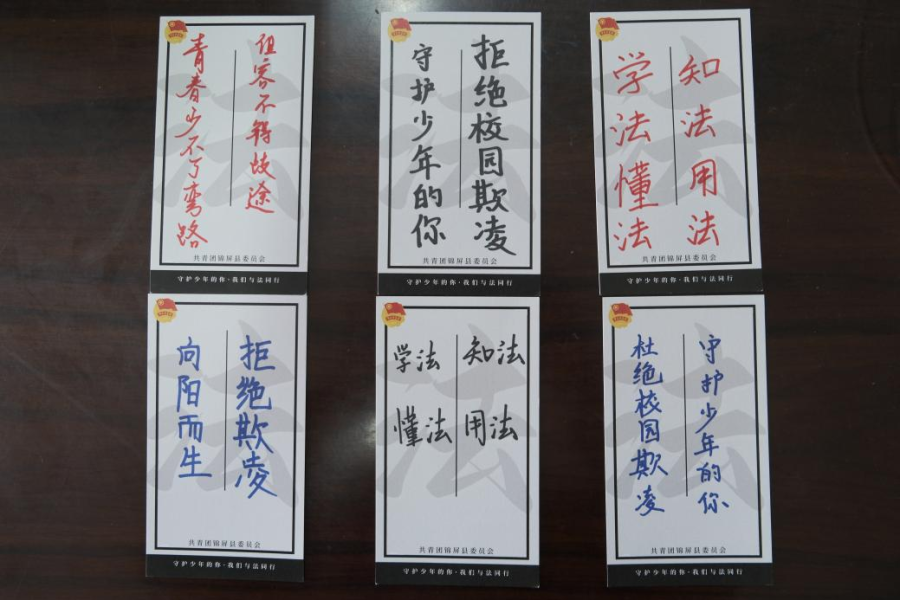 青春少不了弯路
但容不途
共青团锦屏县委员会
守护少年的你·我们与法同行
拒绝校园欺凌
守护少年的你
共青团锦屏县委员会
守护少年的你·我们与法同行
知法用法
学法懂法
共青团锦屏县委员会
守护少年的你·我们与法同行
拒绝欺凌
向阳而生
共青团锦屏县委员会
守护少年的你·我们与法同行
学法 知法
懂法 用法
共青团锦屏县委员会
守护少年的你·我们与法同行
守护少年的你
杜绝校园欺凌
共青团锦屏县委员会
守护少年的你·我们与法同行